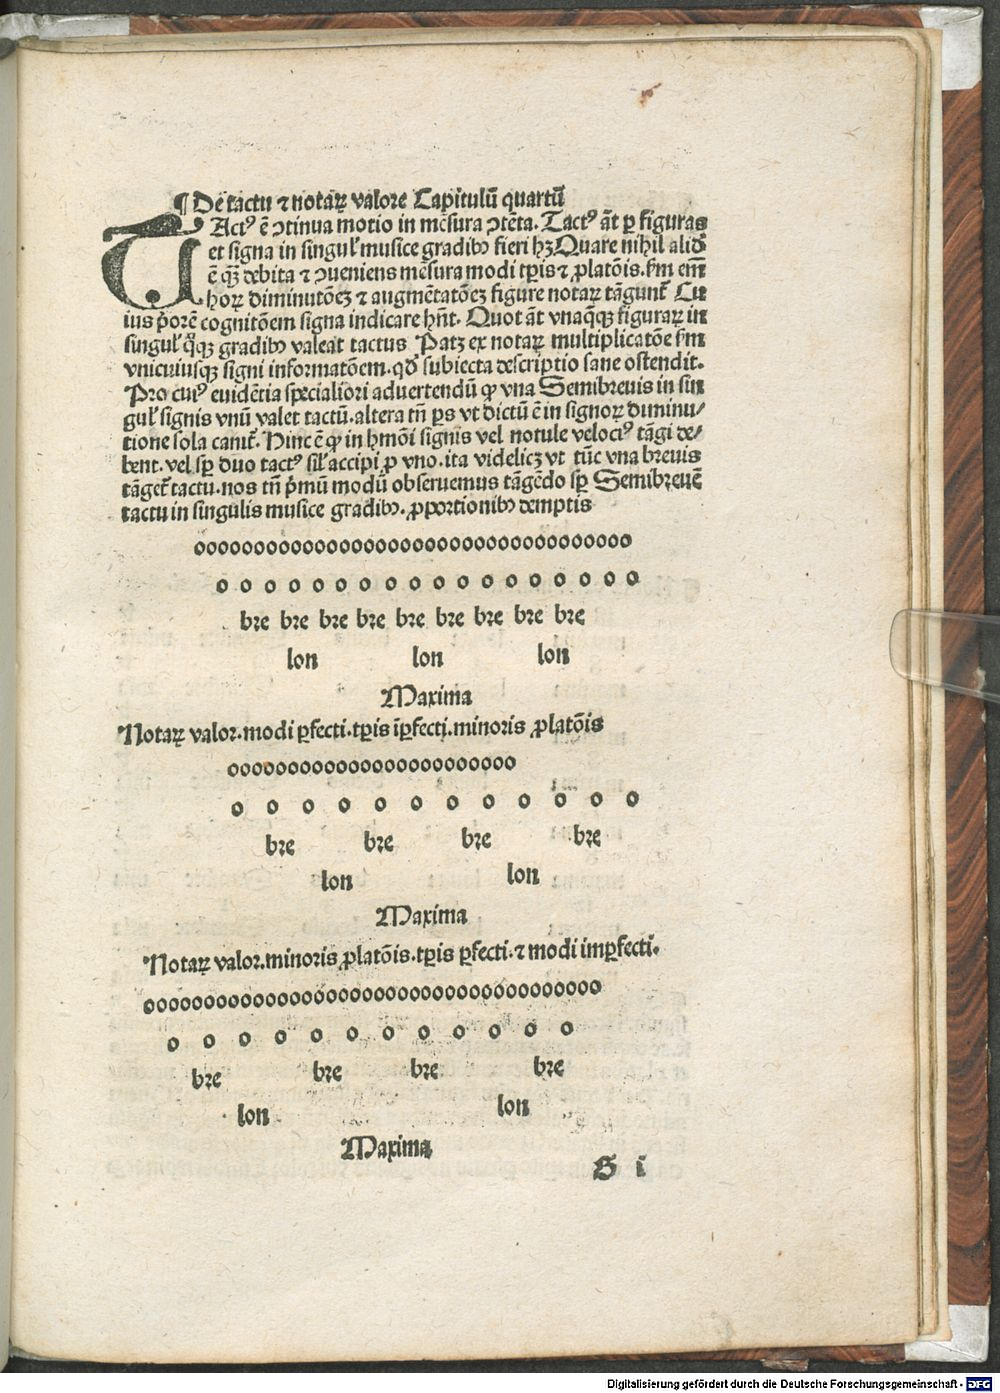 ¶ De tactu ⁊ notaꝝ valore Capitulū quartū
TActꝰ ē ↄtinua motio in mēsura ↄtēta. Tactꝰ āt ꝑ figuras
et signa in singul' musice gradibꝰ fieri hꝫ Quare nihil aliđ
ē qꝫ debita ⁊ ↄueniens mēsura modi tꝑis ⁊ ꝓlatōis. ẜm em̄
hoꝝ diminutōeꝫ ⁊ augmētatōeꝫ figure notaꝝ tāgunt' Cu
ius ṗorē cognitōem signa indicare hn̄t. Quot āt vnaq̄qꝫ figuraꝝ in
singul' q̇̄qꝫ gradibꝰ valeāt tactus Patꝫ ex notaꝝ multiplicatōe ẜm
vniuiusqꝫ signi informatōem. qđ subiecta descriptio sane ostendit.
Pro cuiꝰ euidētia specialiori aduertendū ꝙ vna Semibreuis in sin
gul' signis vnū valet tactū. altera tn̄ ꝑs vt dictū ē in signoꝝ diminu⸗
tione sola canit'. Hinc ē ꝙ in hmōi signis vel notule velociꝰ tāgi de⸗
bent. vel sꝑ duo tactꝰ sil' accipi ꝓ vno. ita videlicꝫ vt tūc vna breuis
tāget' tactu. nos tn̄ pͥmū modū obseruemus tāgēdo sꝑ Semibreuē
tactu in singulis musice gradibꝰ. ꝓportionibꝰ demptis
oooooooooooooooooooooooooooooooooooo
o o o o o o o o o o o o o o o o o o
bre bre bre bre bre bre bre bre bre
lon lon lon
Maxima
Notaꝝ valor. modi ꝑfecti. tꝑis īꝑfecti. minoris ꝓlatōis
oooooooooooooooooooooooo
o o o o o o o o o o o o
bre bre bre bre
lon lon
Maxima
Notaꝝ valor. minoris ꝓlatōis. tꝑis ꝑfecti. ⁊ modi imꝑfecti.
oooooooooooooooooooooooooooooooooooo
o o o o o o o o o o o o
bre bre bre bre
lon lon
Maxima
G i
Digitalisierung gefördert durch die Deutsche Forschungsgemeinschaft - DFG